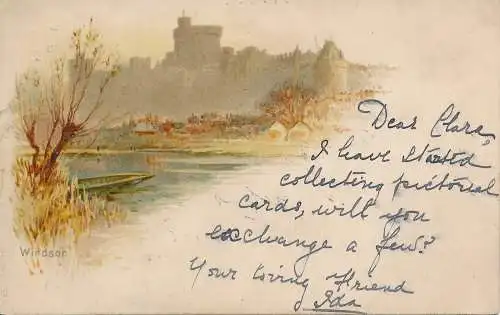 Dear Clara,
I have started
collecting pictorial
cards, will you
exchange a few?
Your loving friend
Ida
Windsor